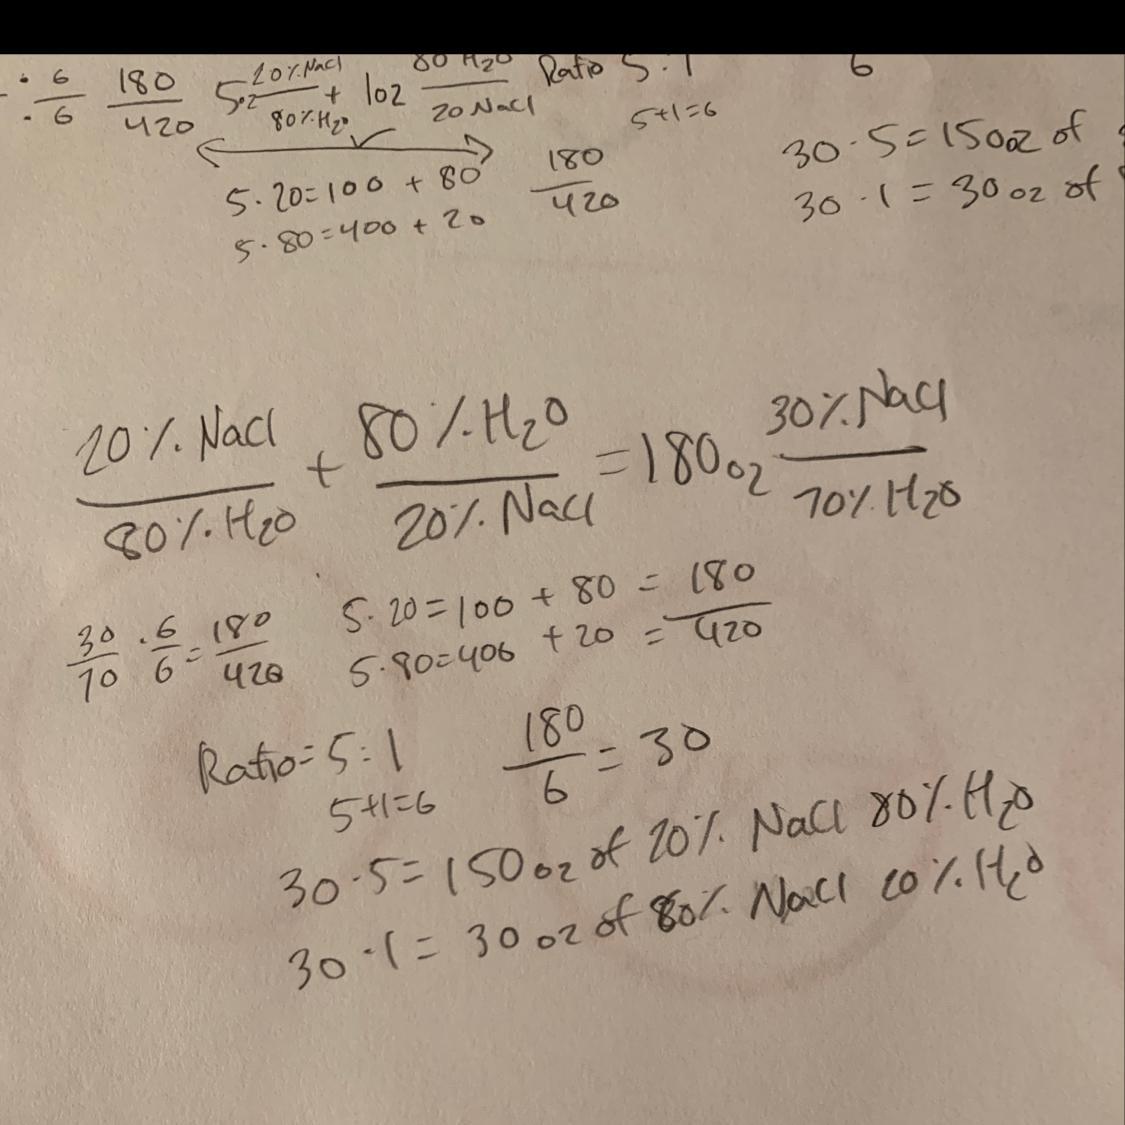 ÷ 6/6 180/420 5oz 20% NaCl/80% H2O + 1oz 80 H2O/20 NaCl Ratio 5:1 6
5+1=6
5·20=100 + 80 180/420 30·5=150oz of
5·80=400 + 20 30·1=30oz of
20% NaCl/80% H2O + 80% H2O/20% NaCl = 180oz 30% NaCl/70% H2O
30/70 · 6/6 = 180/420
5·20=100 + 80 = 180
5·80=400 + 20 = 420
Ratio=5:1 180/6 = 30
5+1=6
30·5=150oz of 20% NaCl 80% H2O
30·1=30oz of 80% NaCl 20% H2O